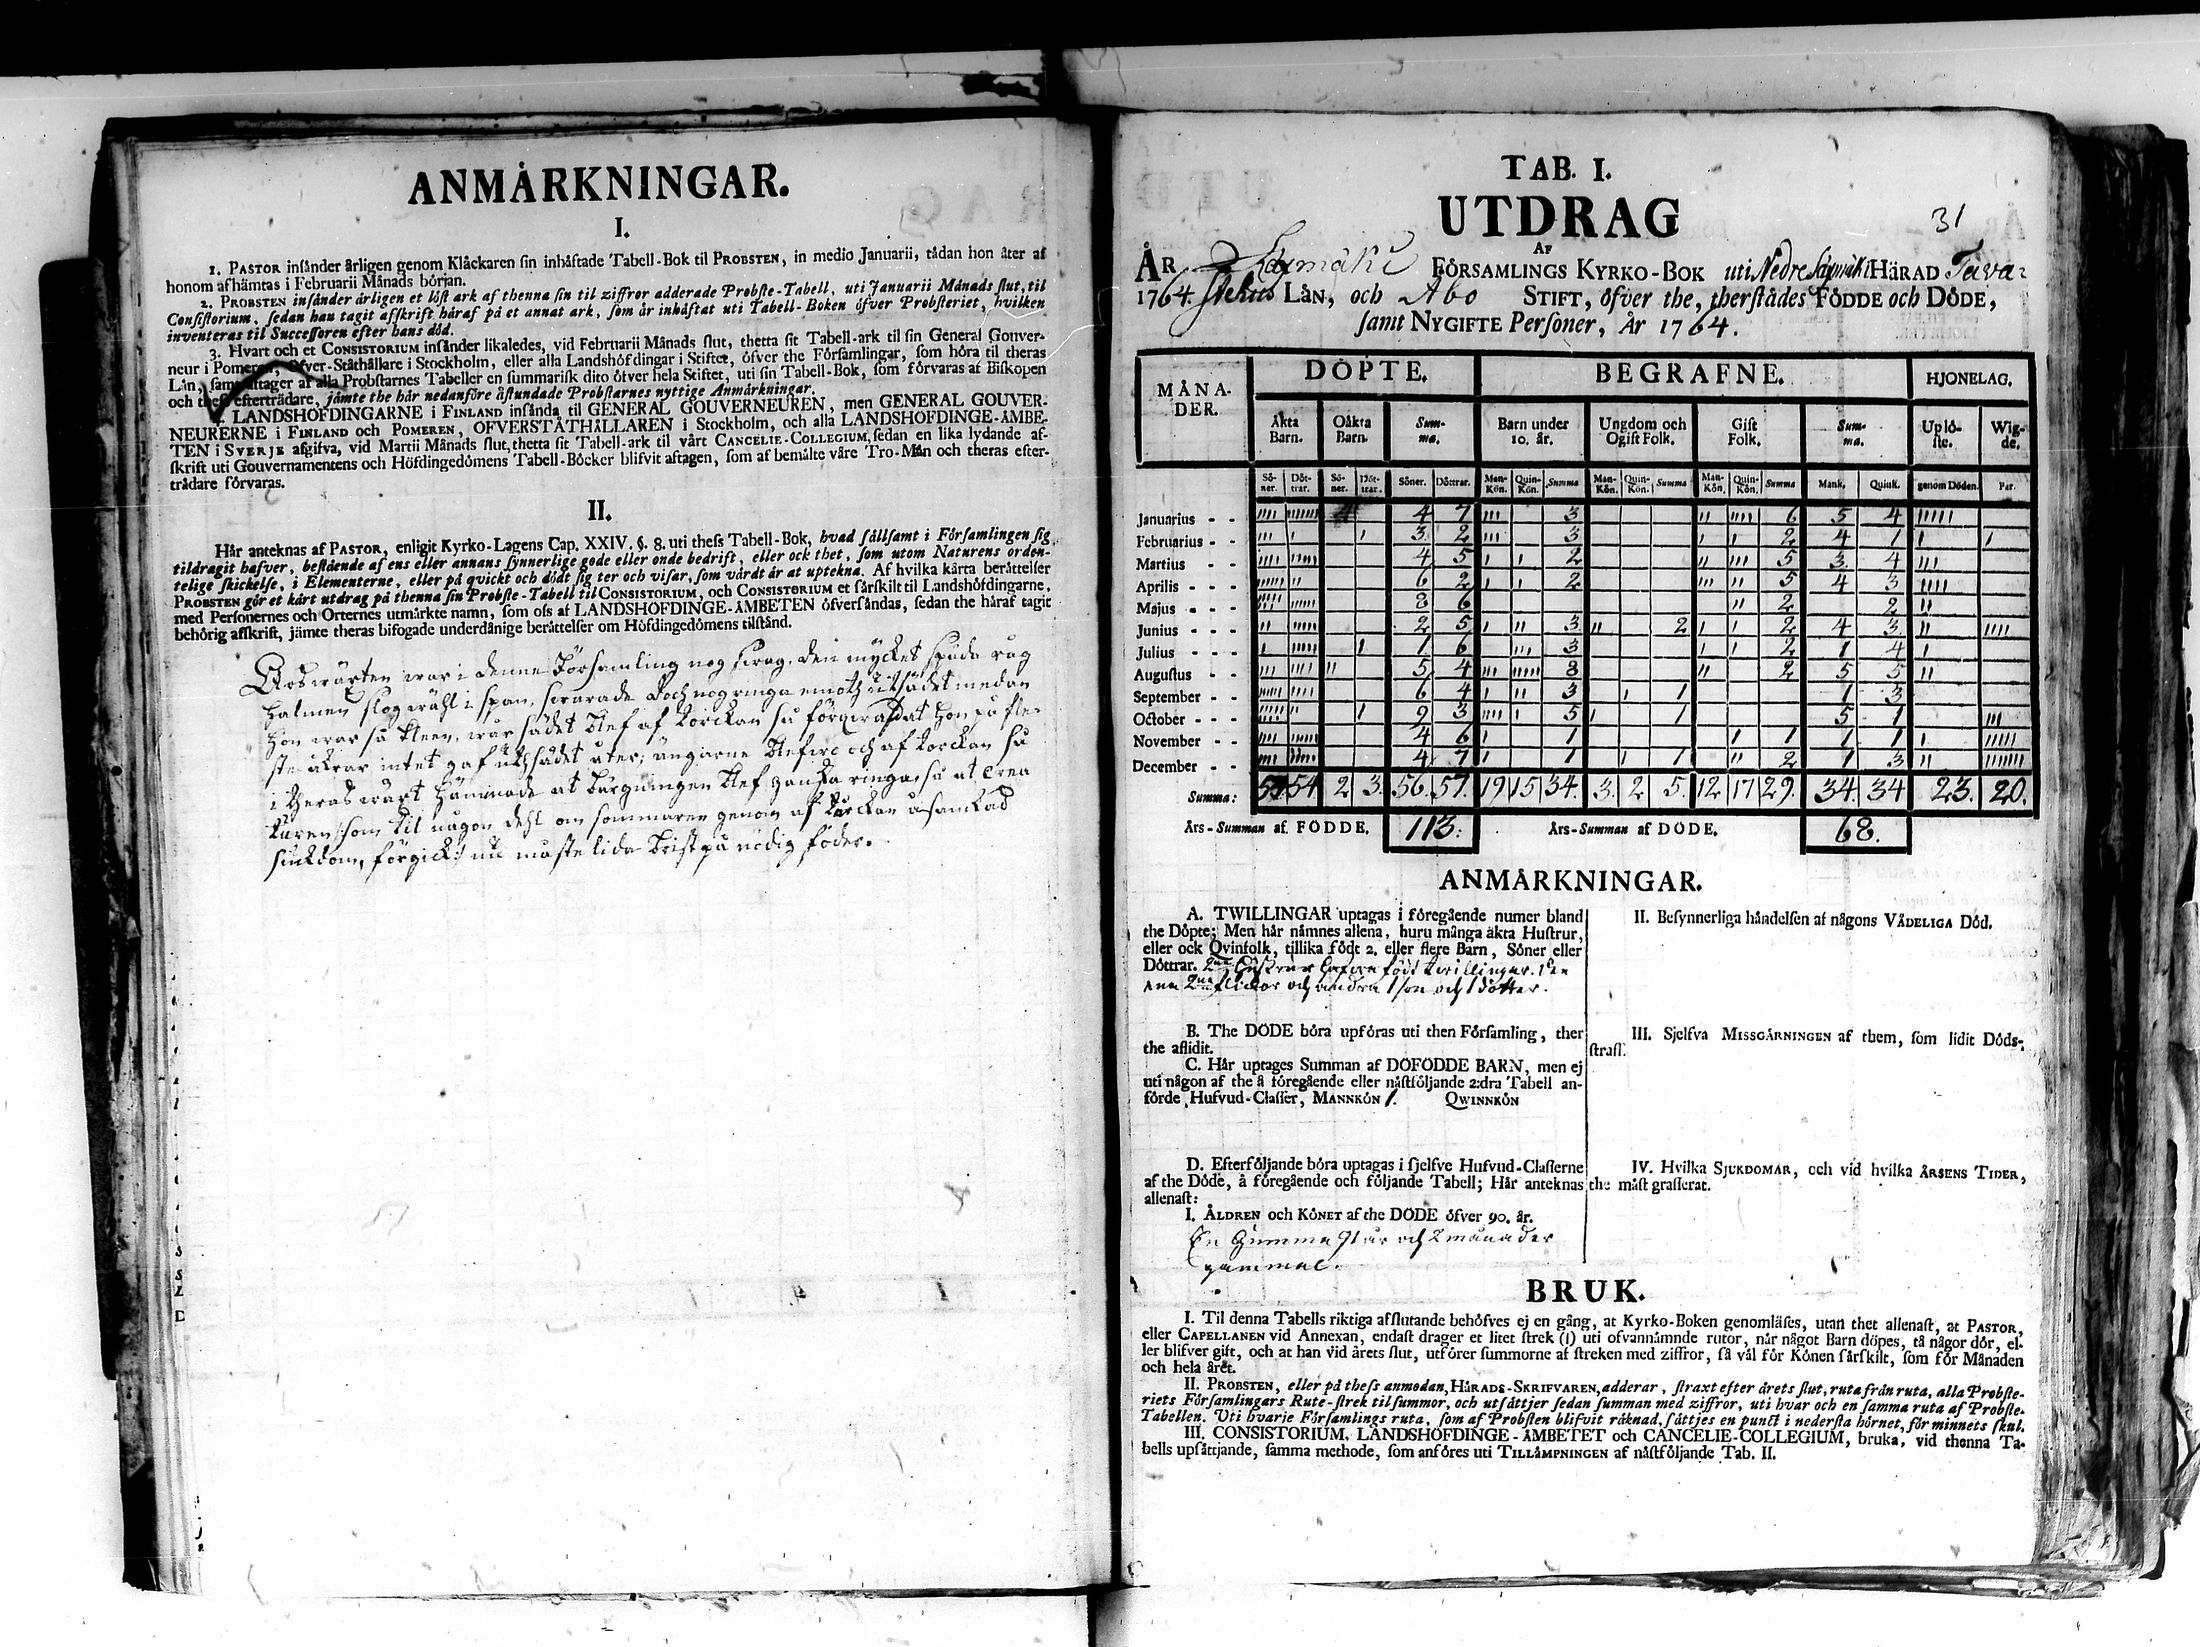 ANMÅRKNINGAR.
I.
1. PASTOR insånder årligen genom Klåckaren sin inhåftade Tabell-Bok til PROBSTEN, in medio Januarii, tådan hon åter af
honom afhämtas i Februarii Månads början.
2. PROBSTEN insånder årligen et löst ark af thenna sin til ziffror adderade Probste-Tabell, uti Januarii Månads slut, til
Consistorium, sedan han tagit afskrift håraf på et annat ark, som år inhåftat uti Tabell-Boken öfver Probsteriet, hvilken
inventeras til Successoren efter hans död.
3. Hvart och et CONSISTORIUM insånder likaledes, vid Februarii Månads slut, thetta sit Tabell-ark til sin General Gouver-
neur i Pomeren, Öfver-Ståthållare i Stockholm, eller alla Landshöfdingar i Stiftet, öfver the Församlingar, som höra til theras
Lån, samt aftager af alla Probstarnes Tabeller en summarisk dito öfver hela Stiftet, uti sin Tabell-Bok, som förvaras af Biskopen
och thess efterträdare, jämte the här nedanföre åstundade Probstarnes nyttige Anmårkningar.
4. LANDSHÖFDINGARNE i FINLAND insånda til GENERAL GOUVERNEUREN, men GENERAL GOUVER-
NEURERNE i FINLAND och POMEREN, ÖFVERSTÅTHÅLLAREN i Stockholm, och alla LANDSHÖFDINGE-ÅMBE-
TEN i SVERJE afgifva, vid Martii Månads slut, thetta sit Tabell-ark til vårt CANCELIE-COLLEGIUM, sedan en lika lydande af-
skrift uti Gouvernamentens och Höfdingedömens Tabell-Böcker blifvit aftagen, som af bemålte våre Tro-Mån och theras efter-
trådare förvaras.
II.
Hår anteknas af PASTOR, enligit Kyrko-Lagens Cap. XXIV. §. 8. uti thess Tabell-Bok, hvad sållsamt i Församlingen sig
tildragit hafver, bestående af ens eller annans synnerlige gode eller onde bedrift, eller ock thet, som utom Naturens orden-
telige skickelse, i Elementerne, eller på qvickt och dödt sig ter och visar, som vårdt år at uptekna. Af hvilka kårta beråttelser
PROBSTEN gör et kårt utdrag på thenna sin Probste-Tabell til CONSISTORIUM, och CONSISTORIUM et sårskilt til Landshöfdingarne,
med Personernes och Orternes utmårkte namn, som oss af LANDSHÖFDINGE-ÅMBETEN öfversåndas, sedan the håraf tagit
behörig afskrift, jämte theras bifogade underdånige beråttelser om Höfdingedömens tilstånd.
Årswäxten war i denne Församling nog swag, den mycket späda råg
halmen slog wähl i span, swarade doch nog ringa emoth utsädet medan
hon war så kleen, wår sädet blef af torckan så förqwafdat hon på fle-
ste åkrar intet gaf uthsädet åter; ängarne blefwo och af torckan så
i theras wäxt hämmade at bärgningen blef ganska ringa, så at Crea
turen, som til någon dehl om sommaren genom af torckan åsamkad
siuckdom, förgick, nu måste lida brist på nödig föder.
31
TAB. I.
UTDRAG
AF
ÅR Loymäki FÖRSAMLINGS KYRKO-BOK uti Nedre Loymäki HÄRAD Tava-
1764. stehus LÅN, och Åbo STIFT, öfver the, therstådes FÖDDE och DÖDE,
samt NYGIFTE Personer, År 1764.
MÅNA- DER. DÖPTE. BEGRAFNE. HJONELAG.
Åkta Barn. Oåkta Barn. Sum- ma. Barn under 10. år. Ungdom och Ogift Folk. Gift Folk. Sum- ma. Uplö- ste. Wig- de.
Sö- ner. Döt- trar. Sö- ner. Döt- trar. Söner. Döttrar. Man- Kön. Quin- Kön. Summa Man- Kön. Quin- Kön. Summa Man- Kön. Quin- Kön. Summa Mank. Quink. genom Döden. Par.
Januarius - - IIII IIIIIII 4 7 III 3 II IIII 6 5 4 IIIII
Februarius - - III I I 3 2 III 3 I I 2 4 1 I I
Martius - - IIII IIIII 4 5 I I 2 II III 5 3 4 III
Aprilis - - - IIIIII II 6 2 I I 2 III II 5 4 3 IIII
Majus - - - IIIIIIII IIIIII 8 6 II 2 2 II
Junius - - - II IIIII 2 5 I II 3 II 2 I I 2 4 3 II IIII
Julius - - - I IIIII I 1 6 III 3 I I 2 1 4 I
Augustus - - III IIII II 5 4 III IIIII 8 II 2 5 5 II
September - - IIIIII IIII 6 4 I II 3 I 1 1 3
October - - - IIIIIIIII II I 9 3 IIII I 5 I 1 5 1 III
November - - IIII IIIIII 4 6 I 1 I 1 1 1 I IIIII
December - - IIII IIIIIII 4 7 I 1 I 1 II 2 1 3 II IIIIIII
Summa: 54 54 2 3. 56. 57. 19 15 34. 3. 2 5. 12 17 29. 34. 34 23. 20.
Års-Summan af FÖDDE. 113. Års-Summan af DÖDE. 68.
ANMÅRKNINGAR.
A. TWILLINGAR uptagas i föregående numer bland
the Döpte; Men hår nämnes allena, huru många åkta Hustrur,
eller ock Qvinfolk, tillika födt 2. eller flere Barn, Söner eller
Döttrar. 2ne hustrur hafwa födt twillingar. 1sen
Ana 2ne flickor och andra 1 son och 1 dotter.
B. The DÖDE böra upföras uti then Församling, ther
the aflidit.
C. Hår uptages Summan af DÖFÖDDE BARN, men ej
uti någon af the å föregående eller nåstföljande 2:dra Tabell an-
förde Hufvud-Classer, MANNKÖN 1. QWINNKÖN
D. Efterföljande böra uptagas i sjelfve Hufvud-Classerne
af the Döde, å föregående och följande Tabell; Hår anteknas
allenast:
I. ÅLDREN och KÖNET af the DÖDE öfver 90. år.
En Gumma 91 år och 2 månader
gammal.
II. Besynnerliga håndelsen af någons VÅDELIGA Död.
III. Sjelfva MISSGÅRNINGEN af them, som lidit Döds-
straff.
IV. Hvilka SJUKDOMAR, och vid hvilka ÅRSENS TIDER,
the måst grasserat.
BRUK.
I. Til denna Tabells riktiga afslutande behöfves ej en gång, at Kyrko-Boken genomläses, utan thet allenast, at PASTOR,
eller CAPELLANEN vid Annexan, endast drager et litet strek (I) uti ofvannämnde rutor, når något Barn döpes, tå någor dör, el-
ler blifver gift, och at han vid årets slut, utförer summorne af streken med ziffror, så väl för Könen sårskilt, som för Månaden
och hela året.
II. PROBSTEN, eller på thess anmodan, HÅRADS-SKRIFVAREN, adderar, straxt efter årets slut, ruta från ruta, alla Probste-
riets Församlingars Rute-strek til summor, och utsåttjer sedan summan med ziffror, uti hvar och en samma ruta af Probste-
Tabellen. Uti hvarje Församlings ruta, som af Probsten blifvit råknad, såttjes en punct i nedersta hörnet, för minnets skul.
III. CONSISTORIUM, LANDSHÖFDINGE-ÅMBETET och CANCELIE-COLLEGIUM, bruka, vid thenna Ta-
bells upsåttjande, samma methode, som anföres uti TILLÅMPNINGEN af nåstföljande Tab. II.